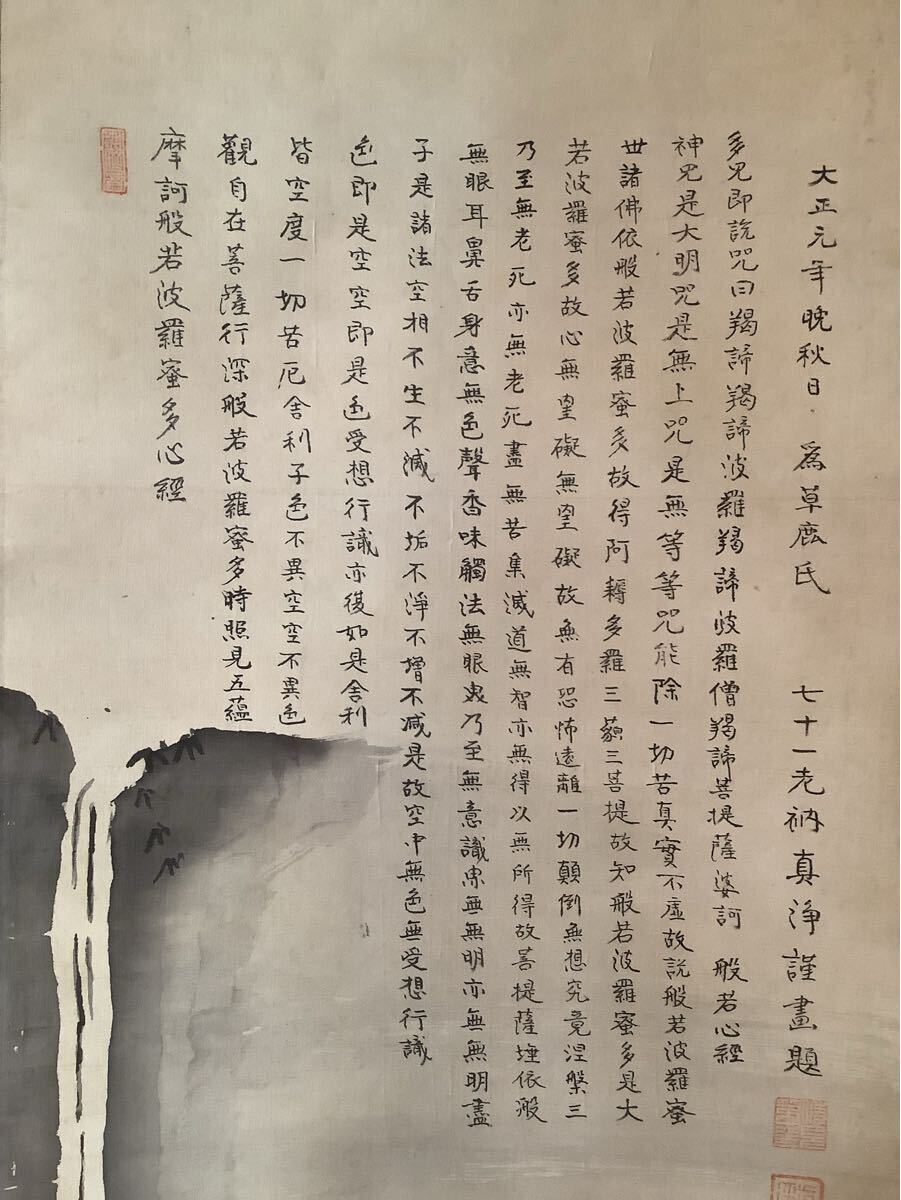 摩訶般若波羅蜜多心經
觀自在菩薩行深般若波羅蜜多時照見五蘊
皆空度一切苦厄舍利子色不異空空不異色
色即是空空即是色受想行識亦復如是舍利
子是諸法空相不生不滅不垢不淨不增不减是故空中無色無受想行識
無眼耳鼻舌身意無色聲香味觸法無眼界乃至無意識界無無明亦無無明盡
乃至無老死亦無老死盡無苦集滅道無智亦無得以無所得故菩提薩埵依般
若波羅蜜多故心無罣礙無罣礙故無有恐怖遠離一切顛倒無想究竟涅槃三
世諸佛依般若波羅蜜多故得阿耨多羅三藐三菩提故知般若波羅蜜多是大
神咒是大明咒是無上咒是無等等咒能除一切苦真實不虛故説般若波羅蜜
多咒即説咒曰羯諦羯諦波羅羯諦波羅僧羯諦菩提薩婆訶 般若心經
大正元年晚秋日 為草鹿氏 七十一老衲真淨謹畫題